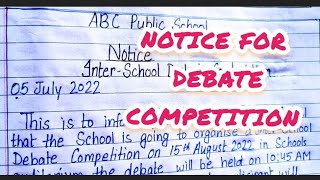 ABC Public School
Notice
Inter-School
NOTICE FOR
DEBATE
COMPETITION
05 July 2022
This is to info
that the School is going to organise
Debate Competition on 15th August 2022 in Schools
the will be held on 10:45 AM
will